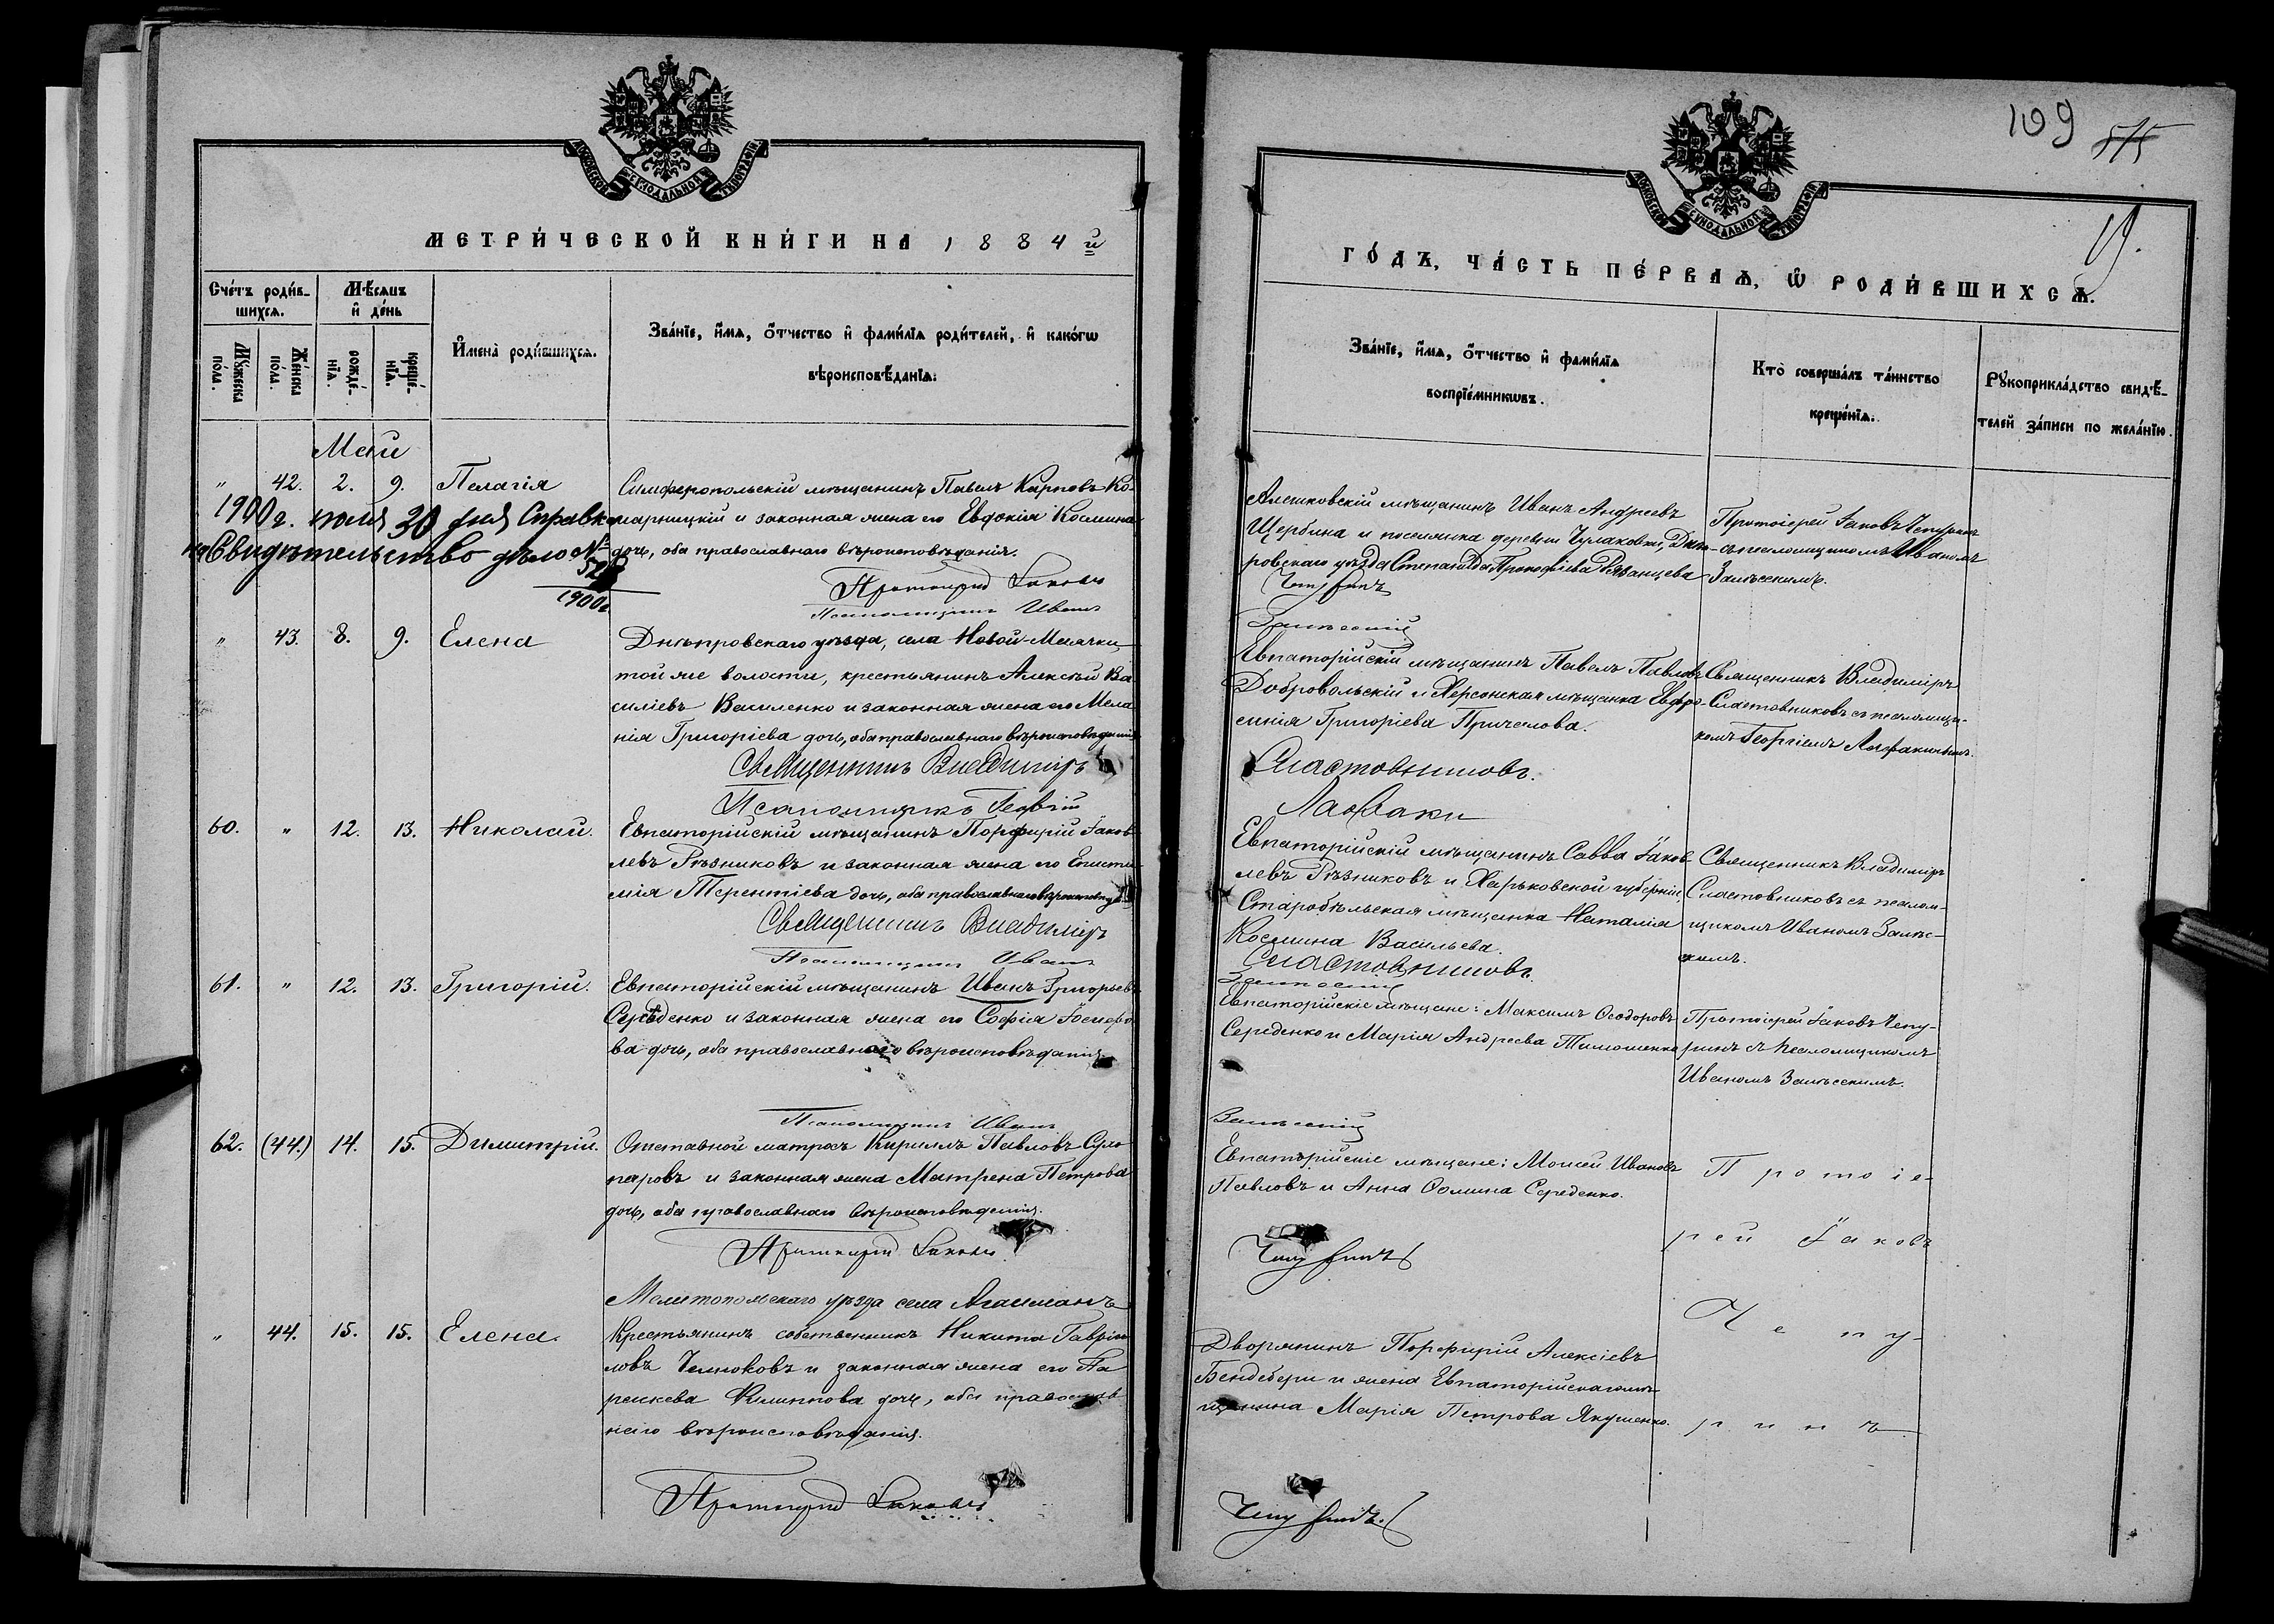 МОСКОВСКОЙ СѴНОДАЛЬНОЙ ТИПОГРАФІИ
МЕТРИ́ЧЕСКОЙ КНИ́ГИ НА 1884 й
Сче́тъ роди́в-
шихсѧ.
Мѣ́сѧцъ
и҆ де́нь
Мꙋ́жеска
по́ла.
Же́нска
по́ла.
рожде́-
нїѧ.
креще́-
нїѧ.
И҆мена̀ роди́вшихсѧ.
Зва́нїе, и҆́мѧ, ѻ҆́тчество и҆ фами́лїѧ роди́телей, и҆ како́гѡ
вѣроисповѣ́данїѧ.
Май
" 42. 2. 9. Пелагія
Симферопольскій мѣщанинъ Павелъ Карповъ Ко-
марницкій и законная жена его Евдокія Космина
дочь, оба православнаго вѣроисповѣданія.
1900 г. июля 30 дня Справка
на Свидѣтельство дѣло №
1900
Протоіерей Іаковъ
Псаломщикъ Иванъ
" 43. 8. 9. Елена
Днѣпровскаго уѣзда, села Новой-Маячки
той же волости, крестьянинъ Алексѣй Ва
силіевъ Василенко и законная жена его Мела
нія Григоріева дочь, оба православнаго вѣроисповѣданія
Священникъ Владиміръ
Псаломщикъ Георгій
60. " 12. 13. Николай.
Евпаторійскій мѣщанинъ Порфирій Іаков
левъ Рѣзниковъ и законная жена его Еписти
мія Терентіева дочь, оба православнаго вѣроисповѣд
Священникъ Владиміръ
Псаломщикъ Иванъ
61. " 12. 13. Григорій.
Евпаторійскій мѣщанинъ Иванъ Григорьевъ
Середенко и законная жена его Софія Іосифо
ва дочь, оба православнаго вѣроисповѣданія
Псаломщикъ Иванъ
62. (44.) 14. 15. Димитрій.
Отставной матросъ Кириллъ Павловъ
паровъ и законная жена Матрена Петрова
дочь, оба православнаго вѣроисповѣданія.
Протоіерей Іаковъ
" 44. 15. 15. Елена.
Мелитопольскаго уѣзда села Агайманъ
Крестьянинъ собственникъ Никита Гавріи
ловъ и законная жена его Па
раскева Филиппова дочь, оба православ
наго вѣроисповѣданія.
Протоіерей Іаковъ
109
19.
МОСКОВСКОЙ СѴНОДАЛЬНОЙ ТИПОГРАФІИ
ГО́ДЪ, ЧА́СТЬ ПЕ́РВАѦ, Ѽ РОДИ́ВШИХСѦ.
Зва́нїе, и҆́мѧ, ѻ҆́тчество и҆ фами́лїѧ
воспрїе́мникѡвъ.
Кто̀ соверша́лъ та́инство
креще́нїѧ.
Рꙋкоприкла́дство свидѣ́-
телей за́писи по жела́нїю.
Алешковскій мѣщанинъ Иванъ Андреевъ
Щербина и поселянка деревни Чулаковки, Днѣп-
ровскаго уѣзда Степанида Прокофіева Рязанцева
Чепуринъ
Залѣсскій
Протоіерей Іаковъ Чепуринъ
съ псаломщикомъ Иваномъ
Залѣсскимъ.
Евпаторійскій мѣщанинъ Павелъ Павловъ
Добровольскій и Херсонская мѣщанка Евфро-
синія Григоріева Причелова.
Сластовниковъ.
Священникъ Владиміръ
Сластовниковъ съ псаломщи-
комъ Георгіемъ
Евпаторійскій мѣщанинъ Савва Іаков
левъ Рѣзниковъ и Харьковской губерніи,
Старобѣльская мѣщанка Наталія
Космина Васильева.
Сластовниковъ.
Залѣсскій
Священникъ Владиміръ
Сластовниковъ съ псалом-
щикомъ Иваномъ Залѣс-
скимъ.
Евпаторійскіе мѣщане: Максимъ Ѳеодоровъ
Середенко и Марія Андреева Тимошенко
Залѣсскій
Протоіерей Іаковъ Чепу-
ринъ съ псаломщикомъ
Иваномъ Залѣсскимъ.
Евпаторійскіе мѣщане: Моисей Ивановъ
Павловъ и Анна Ѳомина Середенко.
Чепуринъ
Протоіе-
рей Іаковъ
Чепу-
ринъ
Дворянинъ Порфирій Алексіевъ
Бендебери и жена Евпаторійскаго мѣ-
щанина Марія Петрова Якушенко.
Чепуринъ.